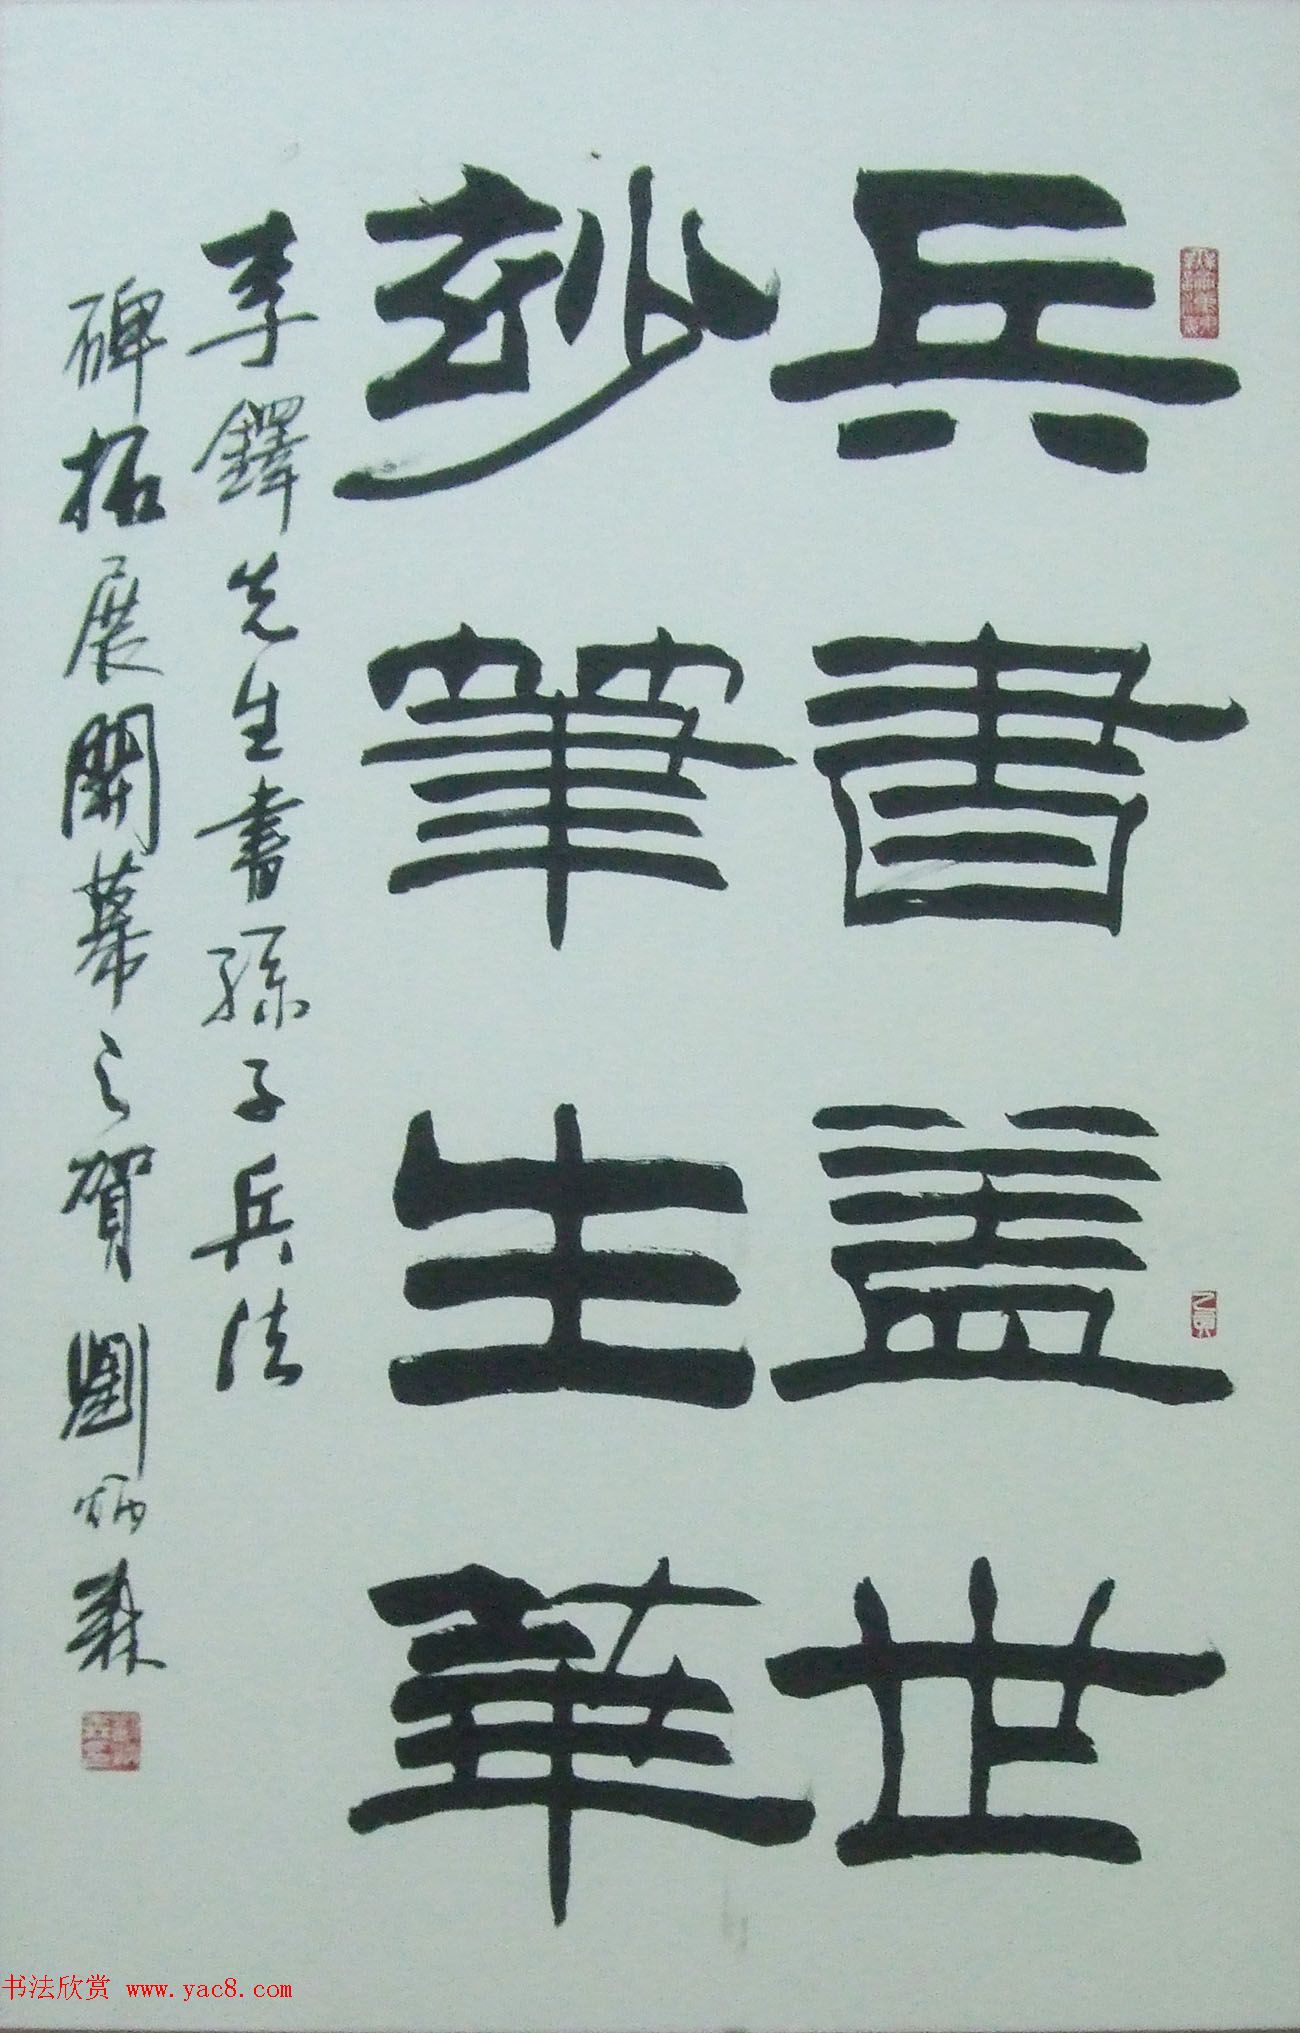 兵書盖世
玅筆生華
李鐸先生書孫子兵法
碑拓展開幕之賀 劉炳森
书法欣赏 www.yac8.com